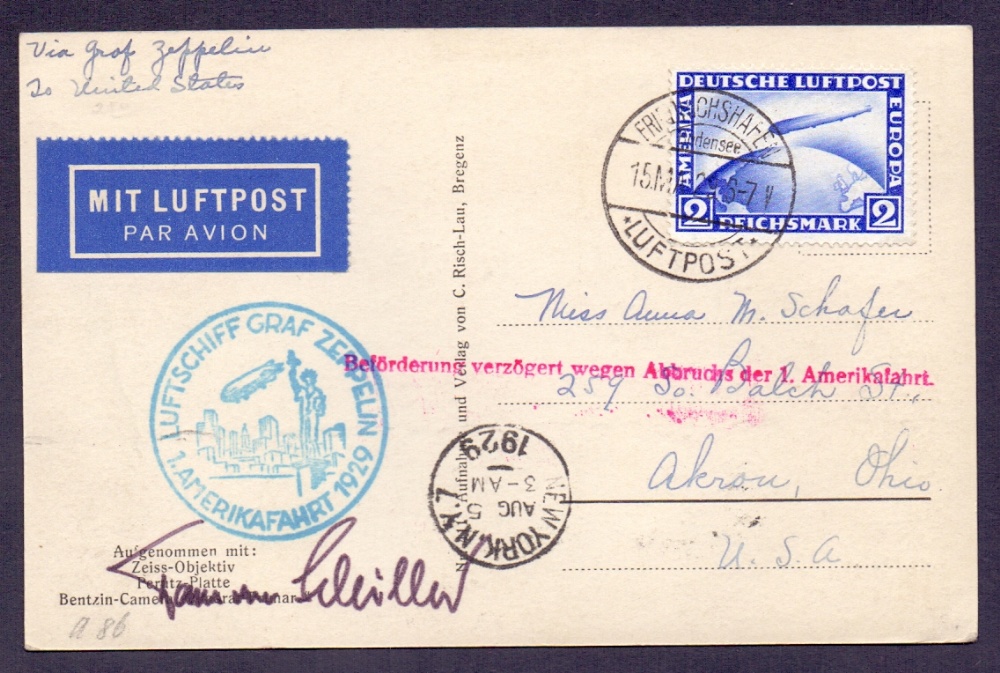 Via Graf Zeppelin
To United States
MIT LUFTPOST
PAR AVION
DEUTSCHE LUFTPOST
AMERIKA
EUROPA
2 REICHSMARK 2
FRIEDRICHSHAFEN
Bodensee
15.
6-7 N
*LUFTPOST*
LUFTSCHIFF GRAF ZEPPELIN
1. AMERIKAFAHRT 1929
Aufnahme und Verlag von C. Risch-Lau, Bregenz
Miss Anna M. Schafer
Beförderung verzögert wegen Abbruchs der 1. Amerikafahrt.
259 So. Balch St.,
Akron, Ohio
U.S.A.
NEW YORK, N.Y.
AUG
5
3-AM
1929
Aufgenommen mit:
Zeiss-Objektiv
Perutz-Platte
Bentzin-Camera
a 86